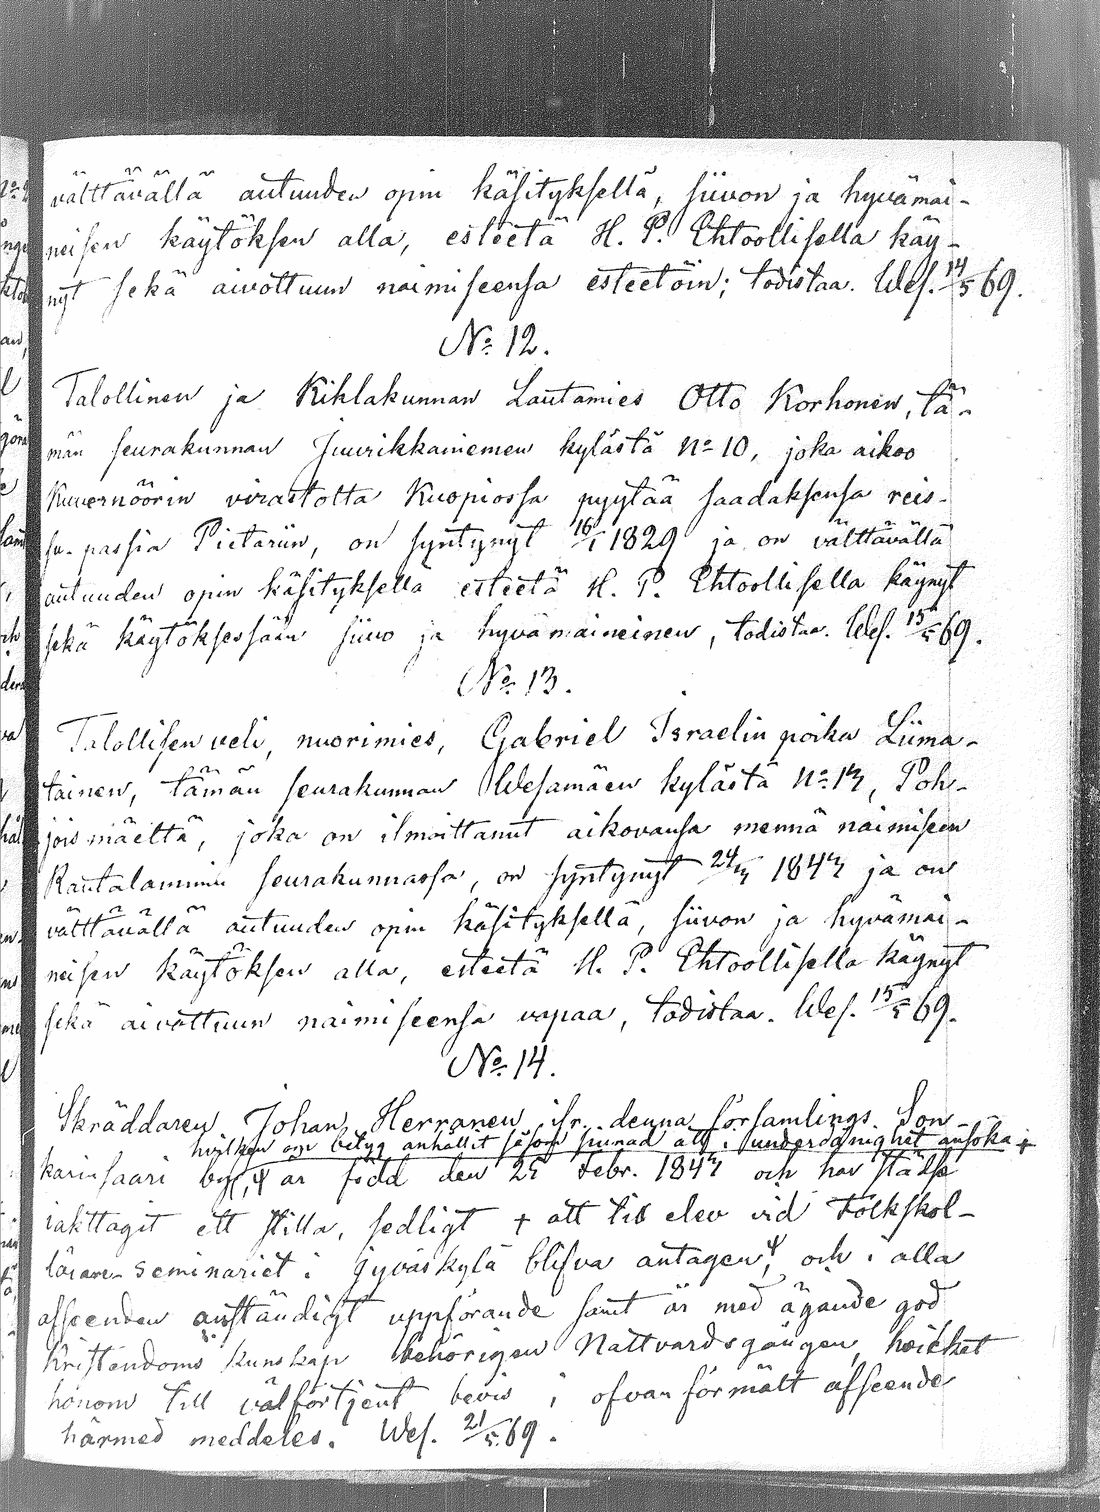 välttävällä autuuden opin käsityksellä, siivon ja hyvämai-
neisen käytöksen alla, esteetä H. P. Ehtoollisella käy-
nyt sekä aivottuun naimiseensa esteetöin; todistaa. Wes. 14/5 69.
No. 12.
Talollinen ja Kihlakunnan Lautamies Otto Korhonen, tä-
män seurakunnan Juurikkaniemen kylästä No 10, joka aikoo
Kuvernöörin virastolta Kuopiossa pyytää saadaksensa reis-
su-passia Pietariin, on syntynyt 16/1 1829 ja on välttävällä
autuuden opin käsityksellä esteetä H. P. Ehtoollisella käynyt
sekä käytöksessään siivo ja hyvämaineinen, todistaa. Wes. 15/5 69.
No. 13.
Talollisen veli, nuorimies, Gabriel Israelin poika Liima-
tainen, tämän seurakunnan Wesamäen kylästä No 13, Poh-
joismäeltä, joka on ilmoittanut aikovansa mennä naimiseen
Rautalammin seurakunnassa, on syntynyt 24/3 1843 ja on
välttävällä autuuden opin käsityksellä, siivon ja hyvämai-
neisen käytöksen alla, esteetä H. P. Ehtoollisella käynyt
sekä aivottuun naimiseensa vapaa, todistaa. Wes. 15/5 69.
No. 14.
Skräddaren Johan Herranen ifr. denna församlings Son-
hvilken om betyg anhållit såsom sinnad att i underdånighet ansöka +
karinsaari by, ψ är född den 25 Febr. 1843 och har städse
iakttagit ett stilla, sedligt + att till elev vid Folkskol-
lärare-seminariet i Jyväskylä blifva antagen, ψ och i alla
afseenden anständigt uppförande samt är med ägande god
Kristendoms kunskap behörigen Nattvardsgången, hvilket
honom till välförtjent bevis i ofvanförmält afseende
härmed meddeles. Wes. 21/5 69.